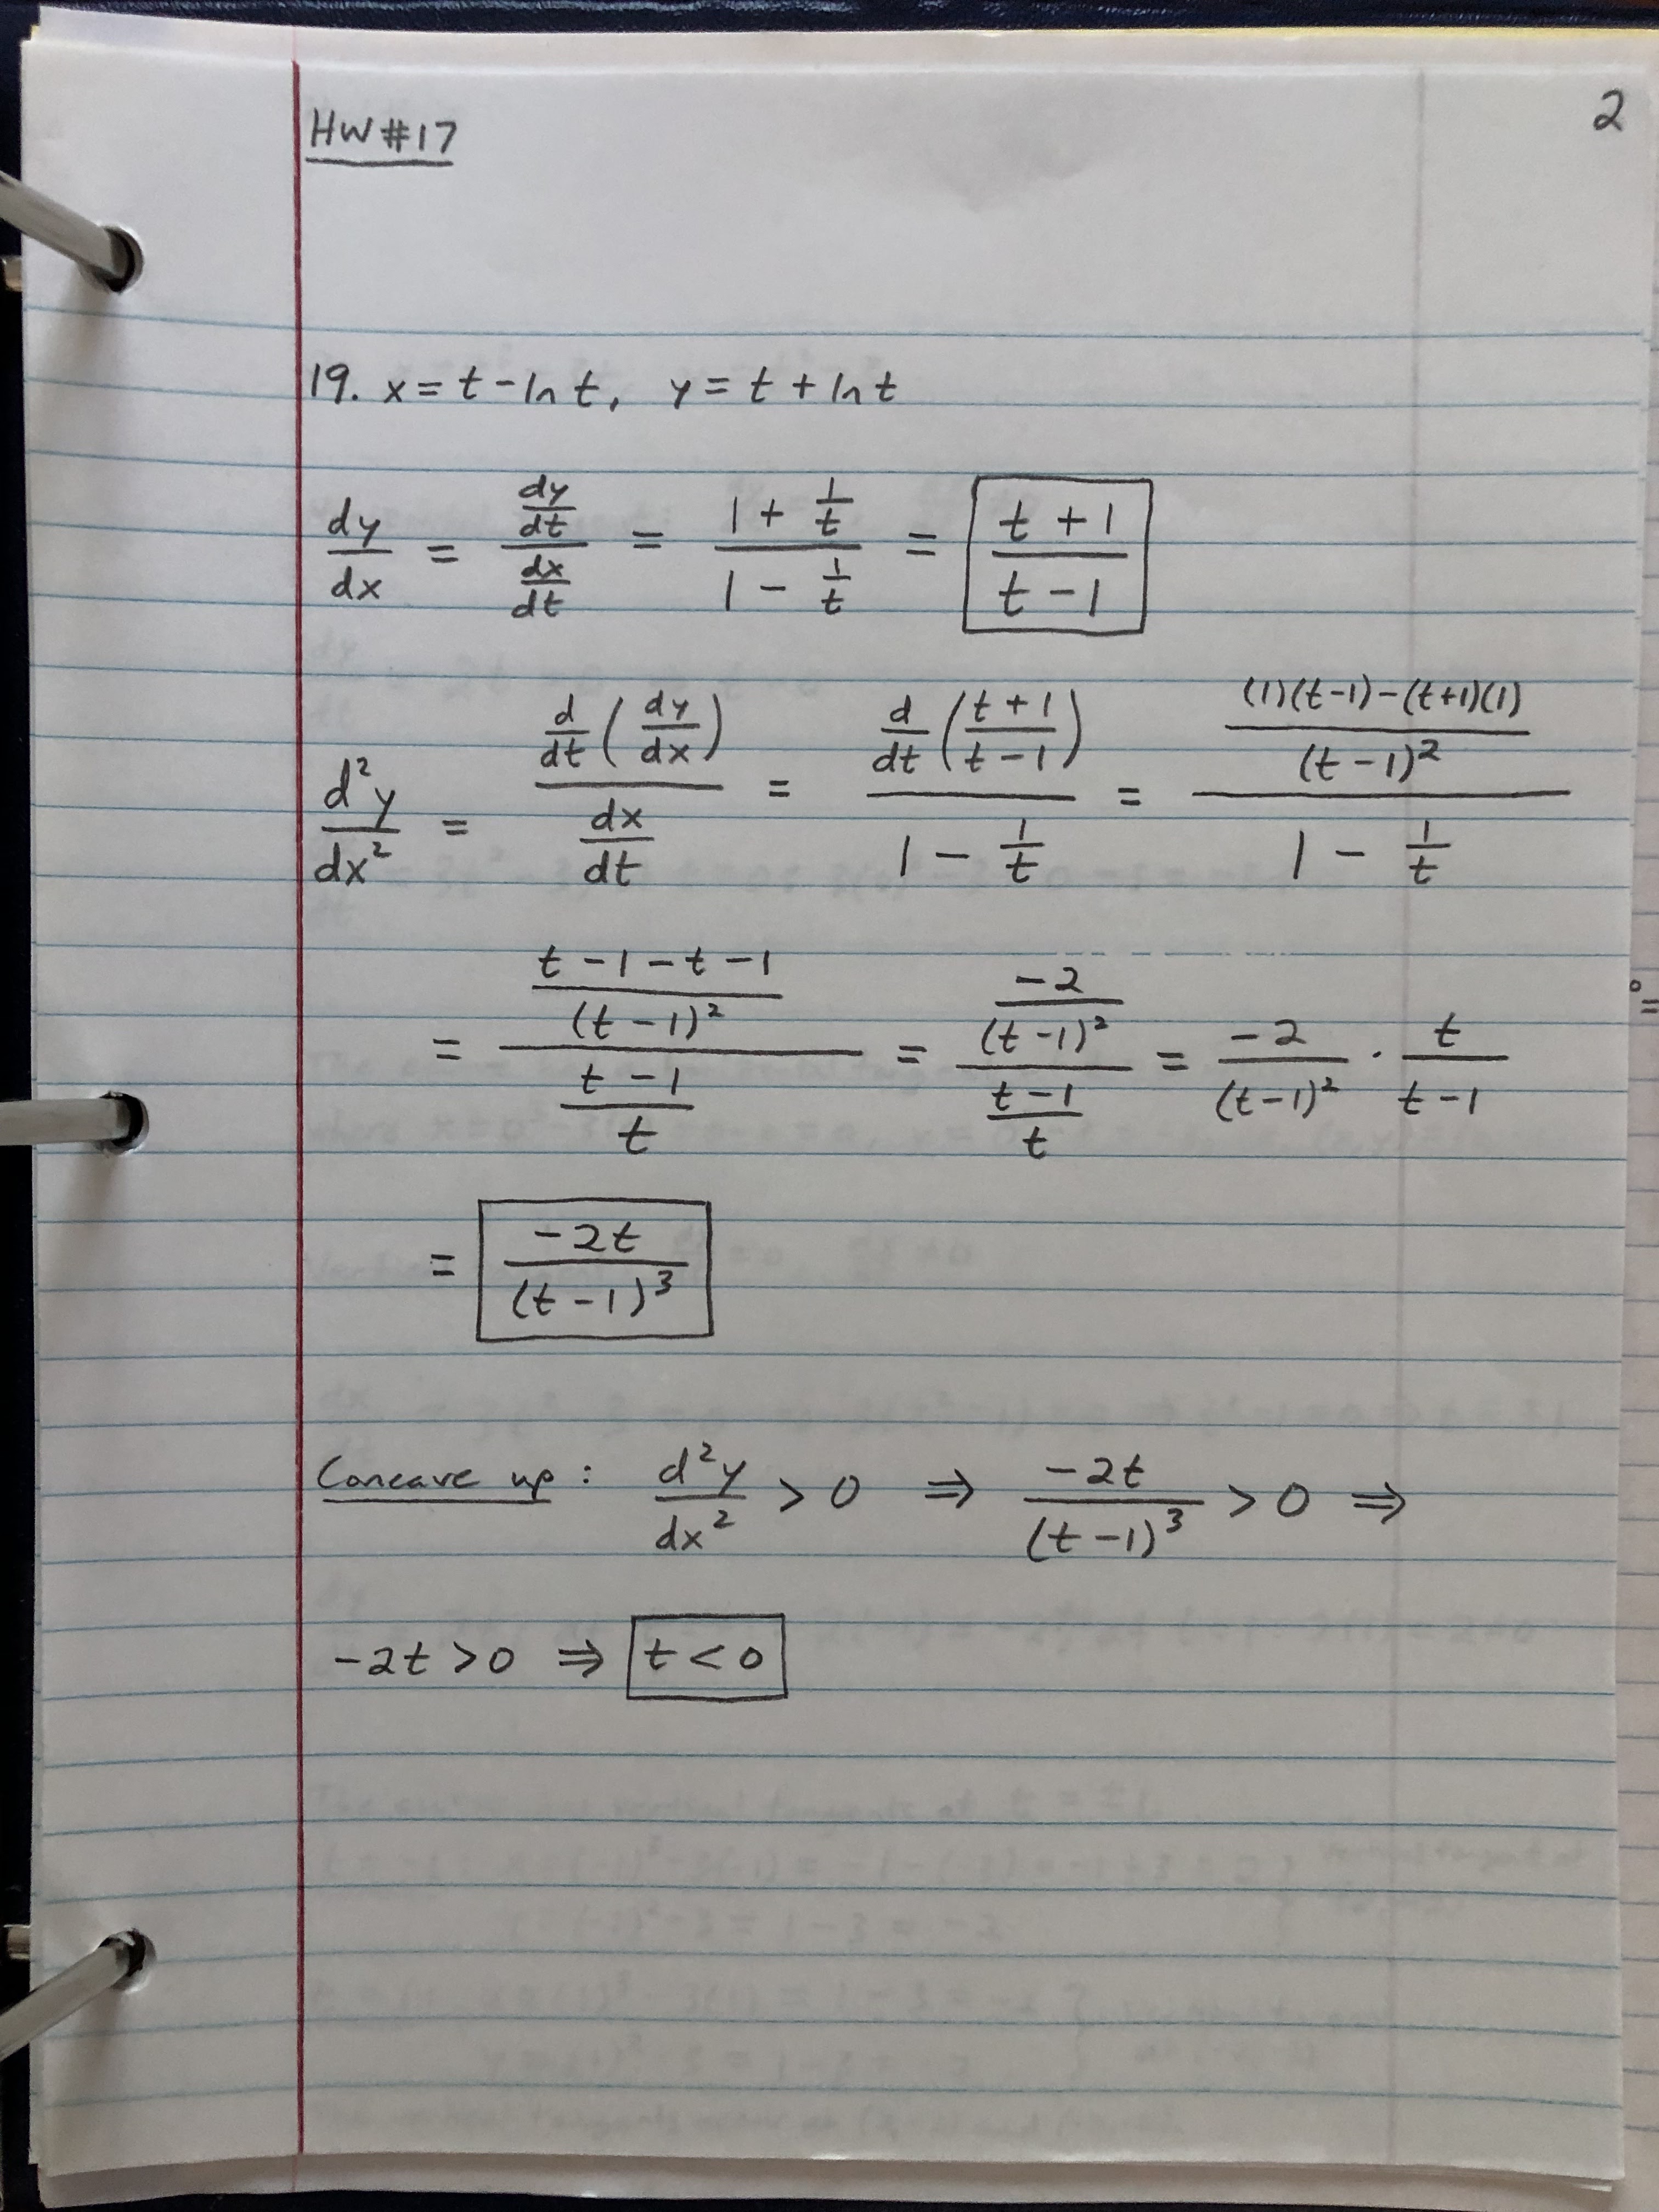 HW #17
2
19. x = t - ln t, y = t + ln t
dy/dx = (dy/dt)/(dx/dt) = (1 + 1/t)/(1 - 1/t) = (t + 1)/(t - 1)
d²y/dx² = (d/dt (dy/dx))/(dx/dt) = (d/dt ((t + 1)/(t - 1)))/(1 - 1/t) = (((1)(t-1) - (t+1)(1))/(t - 1)²)/(1 - 1/t)
= ((t - 1 - t - 1)/(t - 1)²)/((t - 1)/t) = (-2/(t - 1)²)/((t - 1)/t) = -2/(t-1)² · t/(t-1)
= -2t/(t - 1)³
Concave up: d²y/dx² > 0 ⇒ -2t/(t - 1)³ > 0 ⇒
-2t > 0 ⇒ t < 0